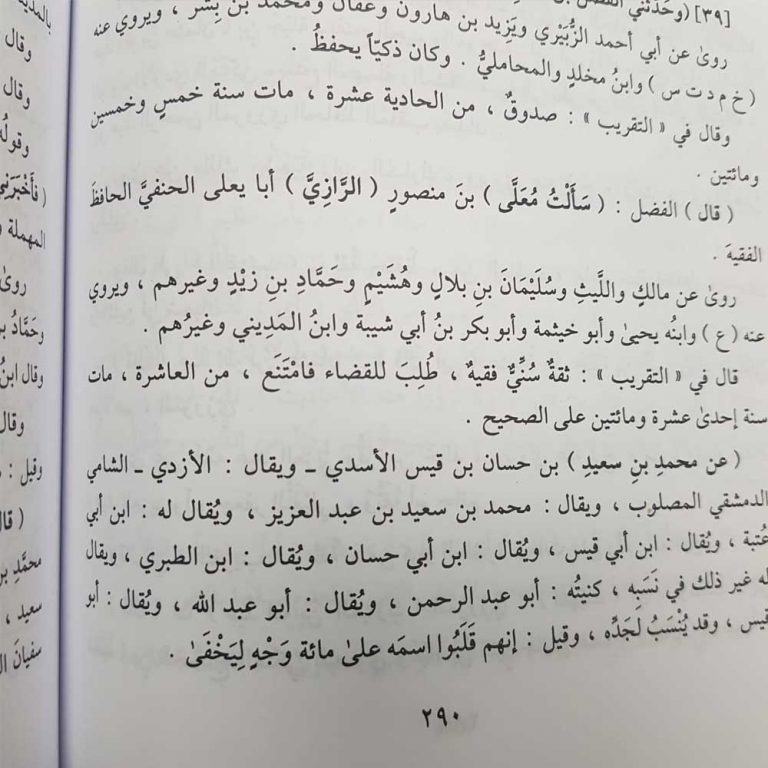 [٣٩] (وحَدَّثني الفضل بن
روىٰ عن أبي أحمد الزُّبَيْري ويَزِيد بن هارون وعفان ومحمد بن بِشْر ، ويروي عنه
( خ م د ت س ) وابنُ مخلدٍ والمحامليُّ . وكان ذكيّاً يحفظُ .
وقال في « التقريب » : صدوقٌ ، من الحادية عشرة ، مات سنة خمسٍ وخمسين
ومائتين .
( قال ) الفضل : ( سَأَلْتُ مُعَلَّى ) بنَ منصورٍ ( الرَّازِيَّ ) أبا يعلى الحنفيَّ الحافظَ
الفقيهَ .
روىٰ عن مالكٍ والليثِ وسُلَيْمَانَ بنِ بلالٍ وهُشَيْمٍ وحَمَّادِ بنِ زيْدٍ وغيرهم ، ويروي
عنه ( ع ) وابنُه يحيىٰ وأبو خيثمة وأبو بكر بنُ أبي شيبة وابنُ المَدِيني وغيرُهم .
قال في « التقريب » : ثقةٌ سُنِّيٌّ فقيهٌ ، طُلِبَ للقضاء فامْتَنَع ، من العاشرة ، مات
سنة إحدىٰ عشرة ومائتين على الصحيح .
( عن محمدِ بنِ سعيدِ ) بن حسان بن قيس الأسدي ـ ويقال : الأزدي ـ الشامي
الدمشقي المصلوب ، ويقال : محمد بن سعيد بن عبد العزيز ، ويُقال له : ابن أبي
عُتبة ، ويُقال : ابن أبي قيس ، ويُقال : ابن أبي حسان ، ويُقال : ابن الطبري ، ويقال
له غير ذلك في نَسَبِه ، كنيتُه : أبو عبد الرحمن ، ويُقال : أبو عبد الله ، ويُقال : أبو
قيس ، وقد يُنْسَبُ لجَدِّه ، وقيل : إنهم قَلَبُوا اسمَه علىٰ مائة وَجْهٍ لِيَخْفَىٰ .
٢٩٠
بالمدينة
وقال
وقال
وقولُه
( فأَخْبَرَنِي
المهملة
روىٰ
وحَمَّادُ
وقال ابنُ
وقال
وقيل :
( قال
محمَّدِ بن
سعيد ،
سفيانَ